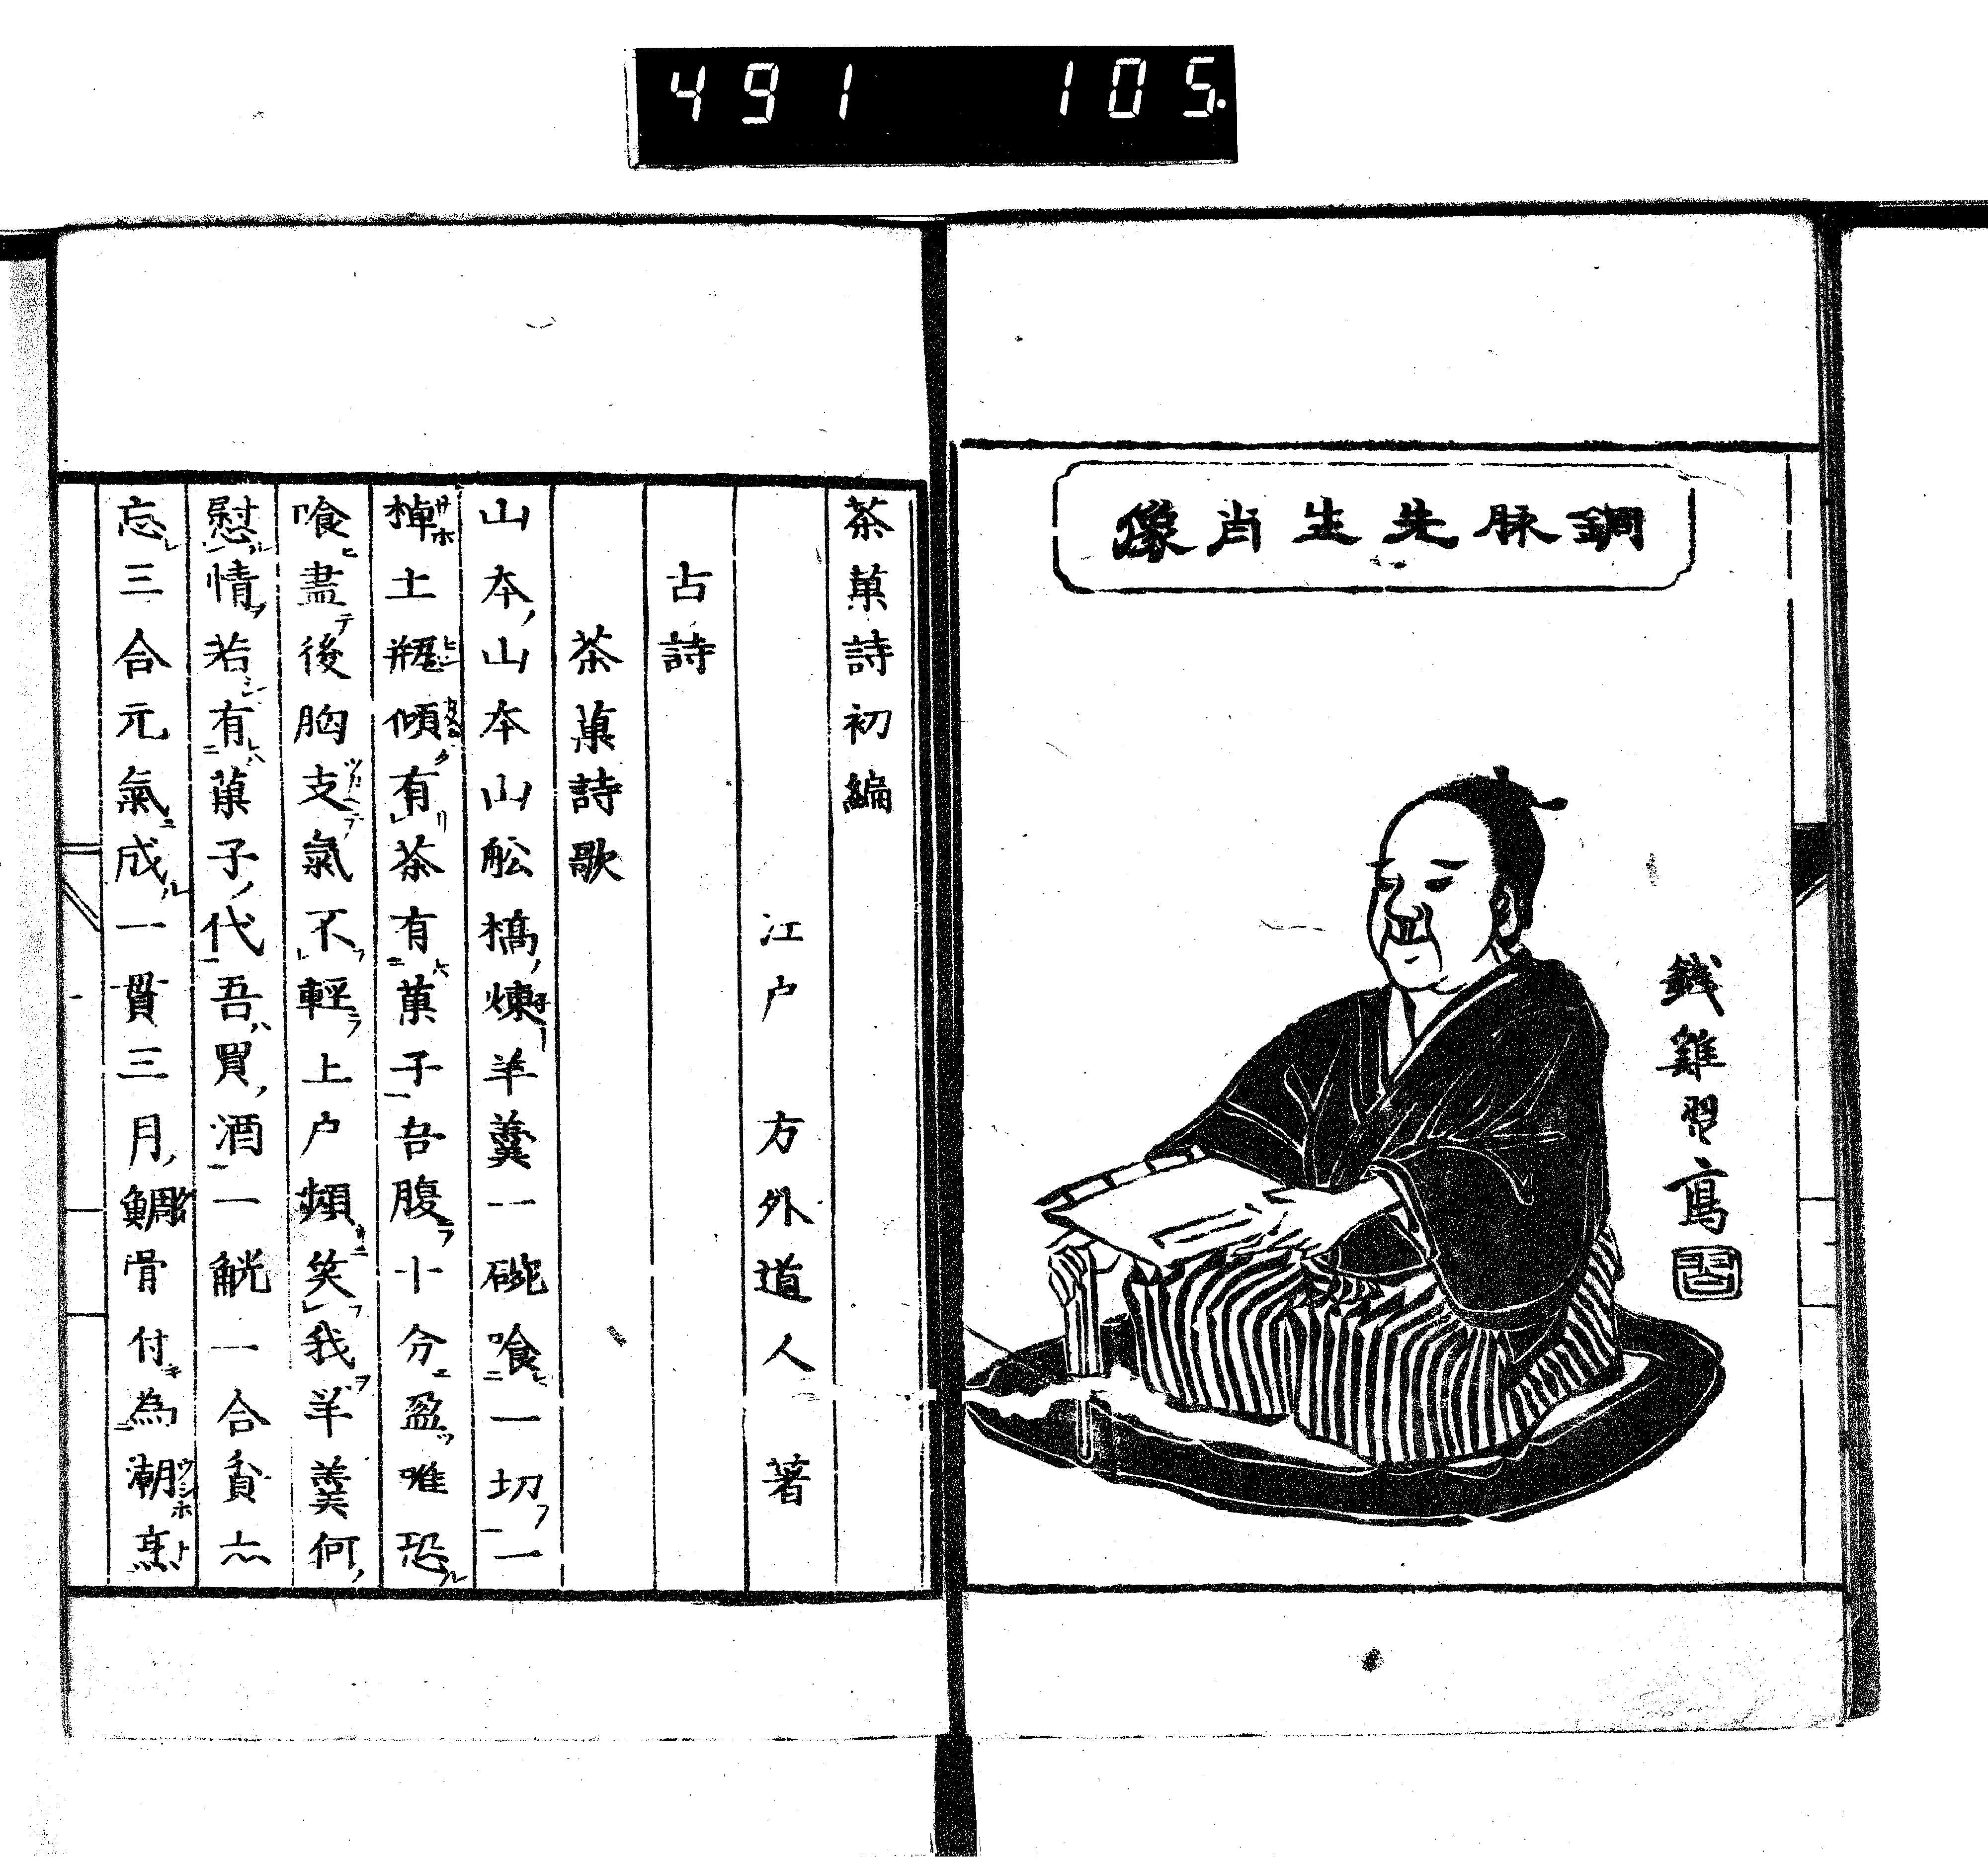 491 105.
銅脉先生肖像
銭雞習寫
習
茶菓詩初編
江戸 方外道人 著
古詩
茶菓詩歌
山本山本山舩橋煉羊羹一碗喰一切一
棹土瓶傾有茶有菓子吾腹十分盈唯恐
喰盡後胸支氣不輕上戸頻笑我羊羹何
慰情若有菓子代吾買酒一觥一合貧亦
忘三合元氣成一貫三月鯛骨付為潮烹